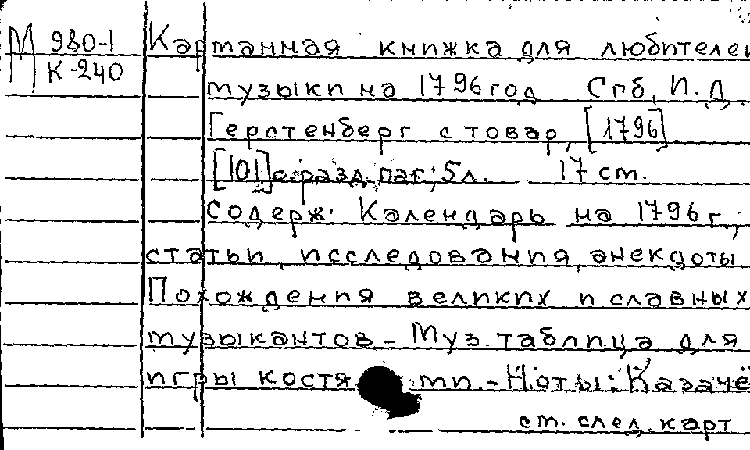 М 980-1
К-240
Карманная книжка для любителей
музыки на 1796 год Спб, И.Д.
Герстенберг с товар, [1796]
[101] с.разд.паг; 5л. 17 ст.
Содерж: Календарь на 1796 г;
статьи, исследования, анекдоты
Похождения великих и славных
музыкантов - Муз. таблица, для
игры костя ми. - Ноты: Казачё
ст. след. карт